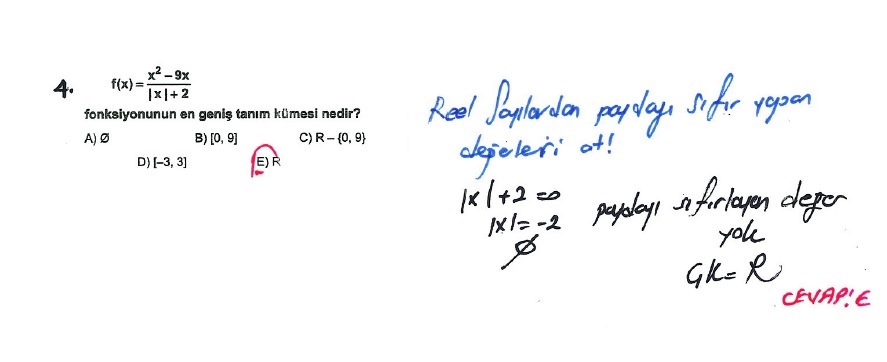 4. f(x) = x² – 9x / |x| + 2
fonksiyonunun en geniş tanım kümesi nedir?
A) Ø B) [0, 9] C) R – {0, 9}
D) [–3, 3] E) R
Reel Sayılardan paydayı sıfır yapan
değerleri at!
|x| + 2 = 0
|x| = -2
Ø
paydayı sıfırlayan değer
yok
GK = R
CEVAP! E